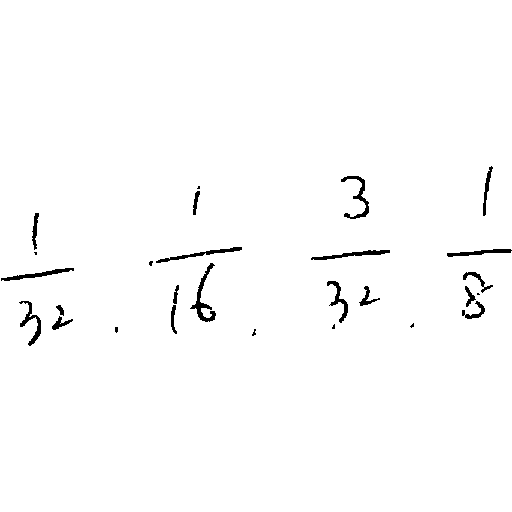 \frac{1}{32} . \frac{1}{16} . \frac{3}{32} . \frac{1}{8}